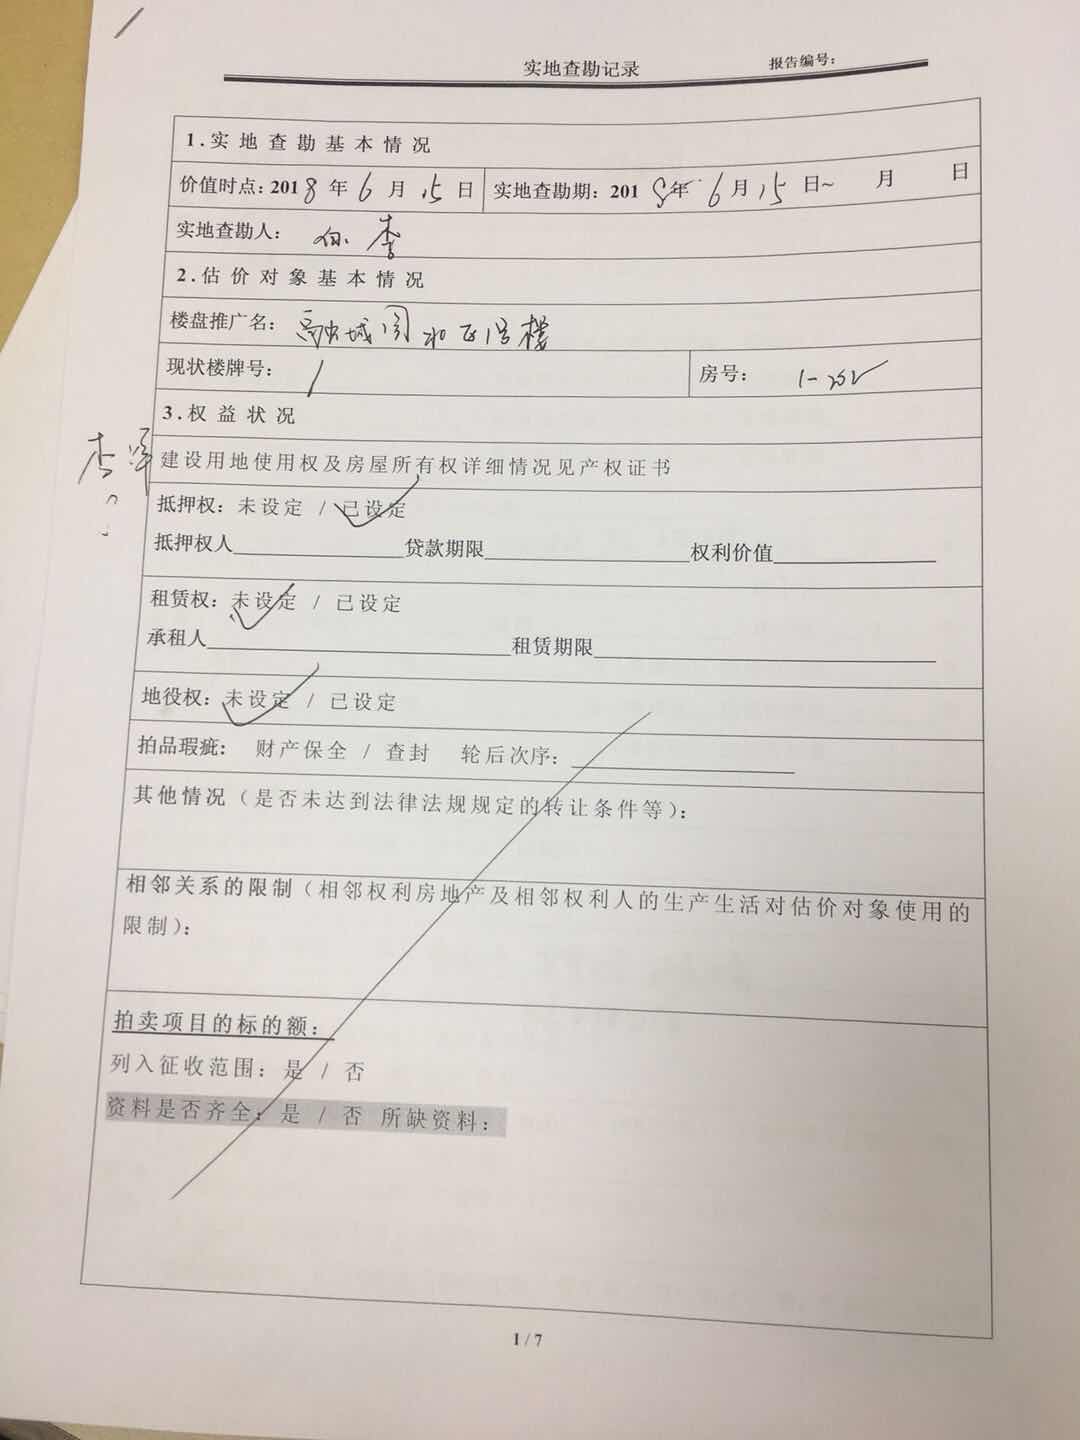 实地查勘记录 报告编号:
1.实地查勘基本情况
价值时点:2018年6月15日 实地查勘期:2018年6月15日~ 月 日
实地查勘人: 李
2.估价对象基本情况
楼盘推广名: 融城 区1号楼
现状楼牌号: 1 房号: 1-202
3.权益状况
李
建设用地使用权及房屋所有权详细情况见产权证书
抵押权: 未设定 / 已设定
抵押权人 贷款期限 权利价值
租赁权: 未设定 / 已设定
承租人 租赁期限
地役权: 未设定 / 已设定
拍品瑕疵: 财产保全 / 查封 轮后次序:
其他情况(是否未达到法律法规规定的转让条件等):
相邻关系的限制(相邻权利房地产及相邻权利人的生产生活对估价对象使用的
限制):
拍卖项目的标的额:
列入征收范围: 是 / 否
资料是否齐全: 是 / 否 所缺资料:
1 / 7